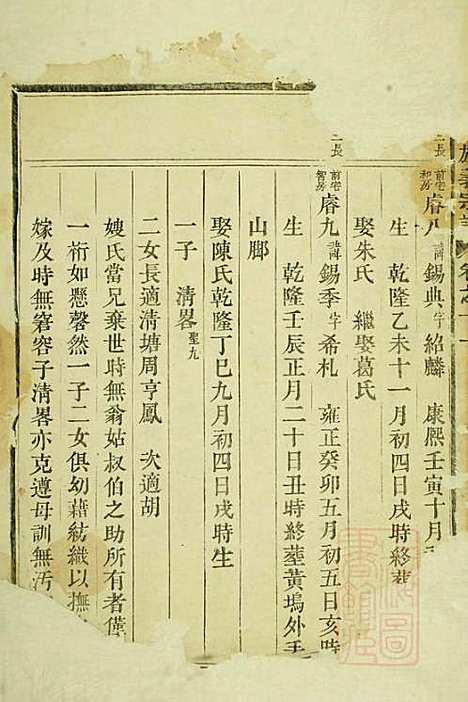 二長 前宅和房 濬八 諱錫典 字紹麟 康熙壬寅十月
生 乾隆乙未十一月初四日戌時終葬
娶朱氏 繼娶葛氏
二長 前宅智房 濬九 諱錫季 字希札 雍正癸卯五月初五日亥時
生 乾隆壬辰正月二十日丑時終塟黃塢外
山腳
娶陳氏乾隆丁巳九月初四日戌時生
一子 清畧 聖九
二女長適清塘周亨鳳 次適胡
嫂氏當兄棄世時無翁姑叔伯之助所有者僅
一桁如懸磬然一子二女俱幼藉紡織以撫
嫁及時無窘容子清畧亦克遵母訓無汚